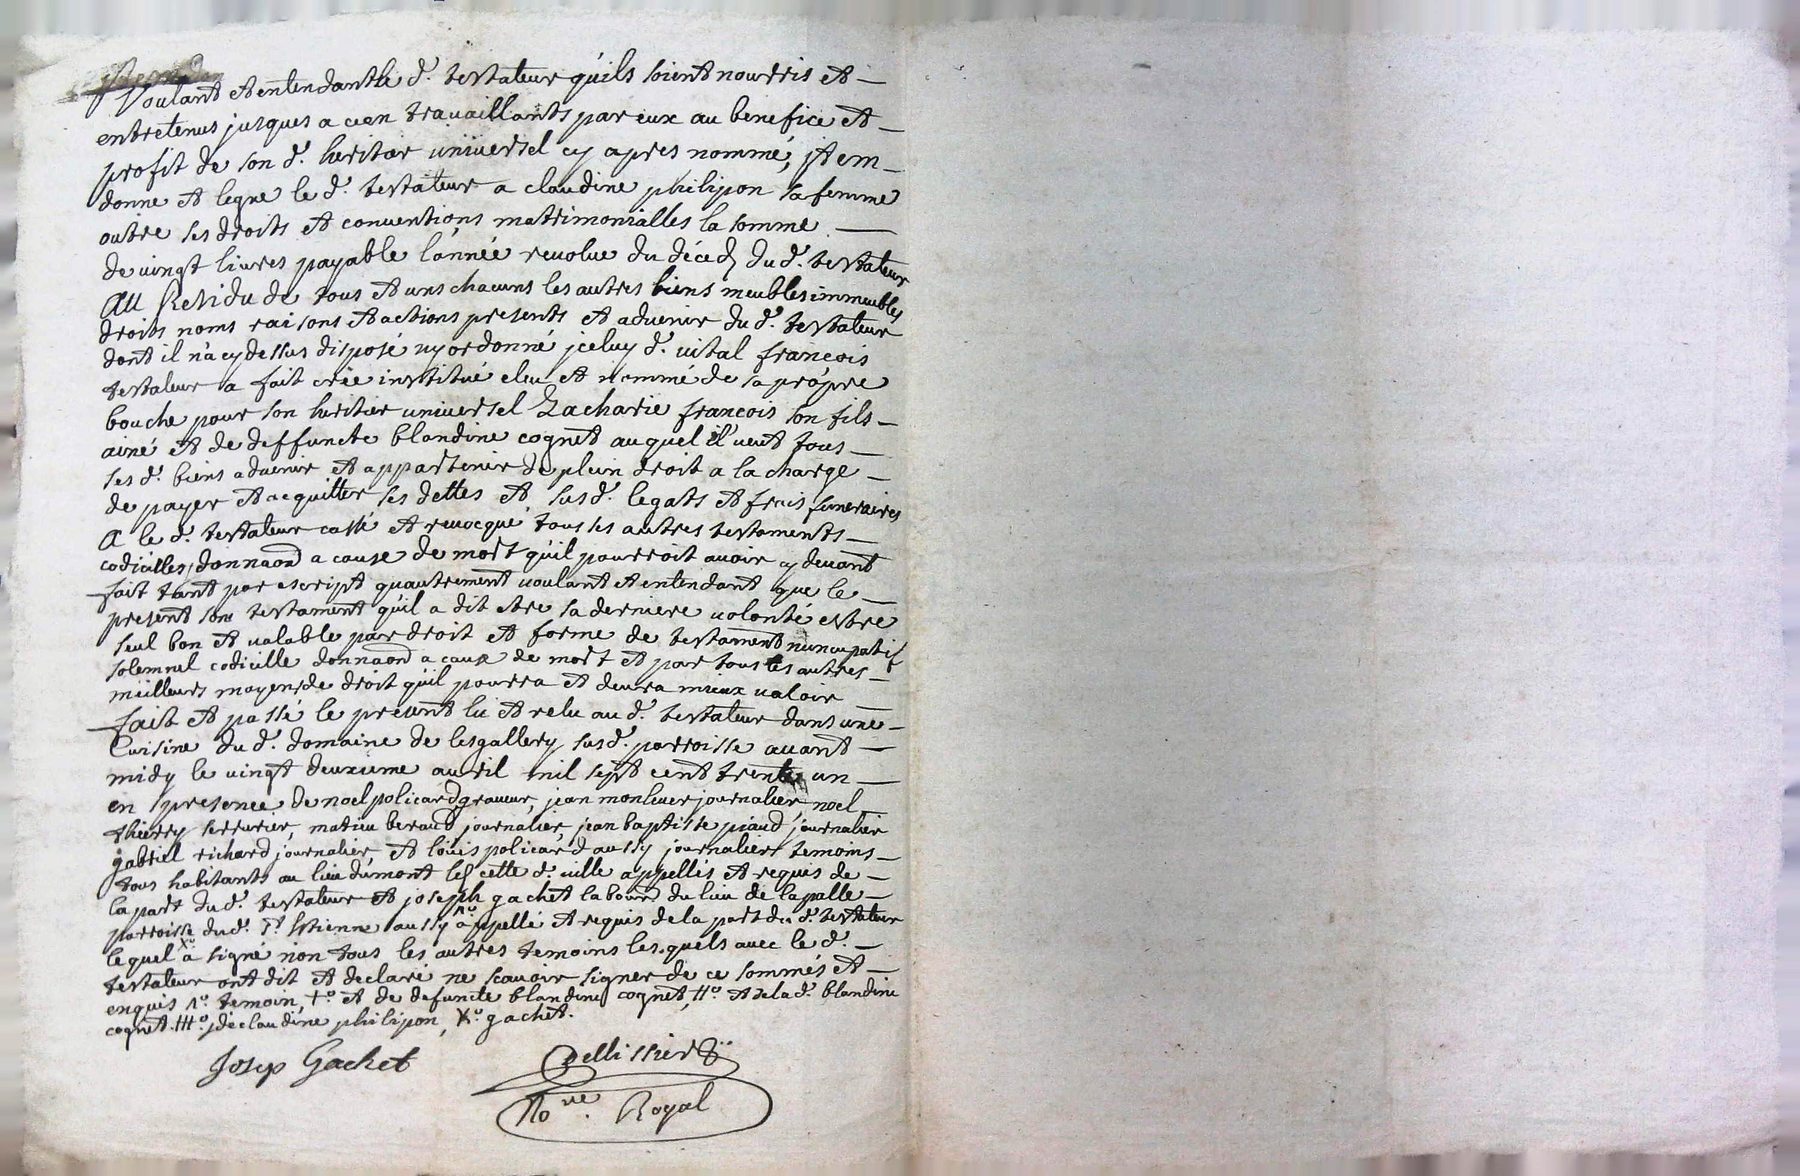 Voulant et entendant le d. testateur quils soient nourris et
entretenus jusques a ce en travaillants par eux au benefice et
profit de son d. heritier universel cy apres nommé, jtem
donne et legue le d. testateur a claudine philipon sa femme
outre ses droits et conventions matrimonialles la somme
de vingt livres payable lannée revolue du déced du d. testateur
Au Residu de tous et uns chacuns les autres biens meubles immeubles
droits noms raisons et actions presents et advenir du d. testateur
dont il n'a cy dessus disposé ny ordonné jceluy d. vital françois
testateur a fait crée institué eleu et nommé de sa propre
bouche pour son heritier universel Zacharie francois son fils
ainé et de deffuncte blandine cognet auquel il veut tous
ses d. biens advenir et appartenir de plein droit a la charge
de payer et acquitter ses dettes et susd. legats et frais funeraires
A le d. testateur cassé et revocqué tous ses autres testaments
codicilles, donnaond a cause de mort quil pourroit avoir cy devant
fait tant par escript quautrement voulant et entendant que le
present son testament quil a dit etre sa derniere volonté estre
seul bon et valable par droit et forme de testament nuncupatif
solemnel codicille donnaond a cause de mort et par tous les autres
meilleurs moyens de droit quil pourra et devra mieux valoir
fait et passé le present lu et relu au d. testateur dans une
Cuisine du d. domaine de lesgallery susd. parroisse avant
midy le vingt deuxieme avril mil sept cent trente un
en presence de noel policard, graveur, jean monlever journalier, noel
thierry serrurier, matieu beraud journalier, jean baptiste piaud journalier
gabriel richard journalier, et louis policard aussy journalier temoins
tous habitants au lieu dumont les cette d. ville appellés et requis de
la part du d. testateur et joseph gachet labour du lieu de lapalle
parroisse du d. St. Estienne aussy 1º appellé et requis de la part du d. testateur
lequel Xº a signé non tous les autres temoins lesquels avec le d.
testateur ont dit et declaré ne scavoir signer de ce sommés et
enquis 1º. temoin, +º et de defuncte blandine cognet, ++º et de la d. blandine
cognet. +++º, de claudine philipon, Xº gachet.
Josep Gachet
Pellissier
No.re Royal